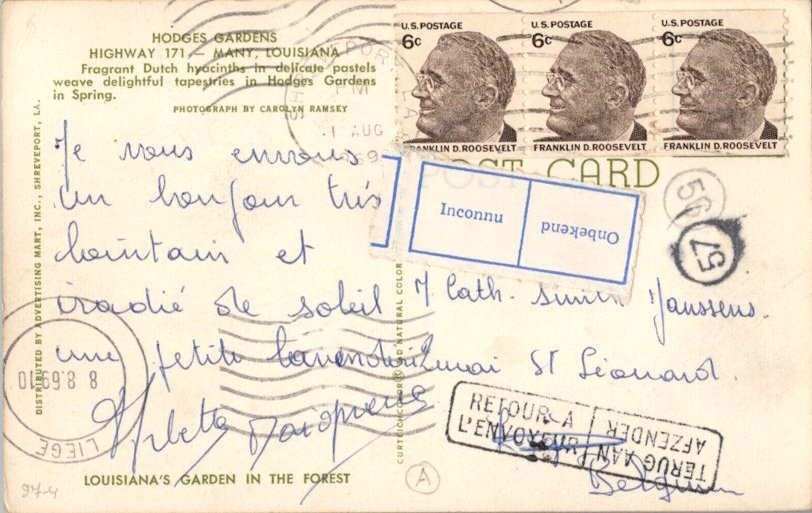 HODGES GARDENS
HIGHWAY 171 — MANY, LOUISIANA
Fragrant Dutch hyacinths in delicate pastels
weave delightful tapestries in Hodges Gardens
in Spring.
PHOTOGRAPH BY CAROLYN RAMSEY
U.S. POSTAGE
6c
FRANKLIN D. ROOSEVELT
U.S. POSTAGE
6c
FRANKLIN D. ROOSEVELT
U.S. POSTAGE
6c
FRANKLIN D. ROOSEVELT
PM
1 AUG
POST CARD
Inconnu
Onbekend
56
57
Je vous envoie
un bonjour très
lointain et
irradié de soleil
une petite
M Cath. Smith Janssens.
quai St Léonard.
Belgium
RETOUR A
L'ENVOYEUR
TERUG AAN
AFZENDER
8 8.69.10
LIEGE
DISTRIBUTED BY ADVERTISING MART, INC., SHREVEPORT, LA.
CURTEICHCOLOR® 3D NATURAL COLOR
LOUISIANA'S GARDEN IN THE FOREST
A
97-4